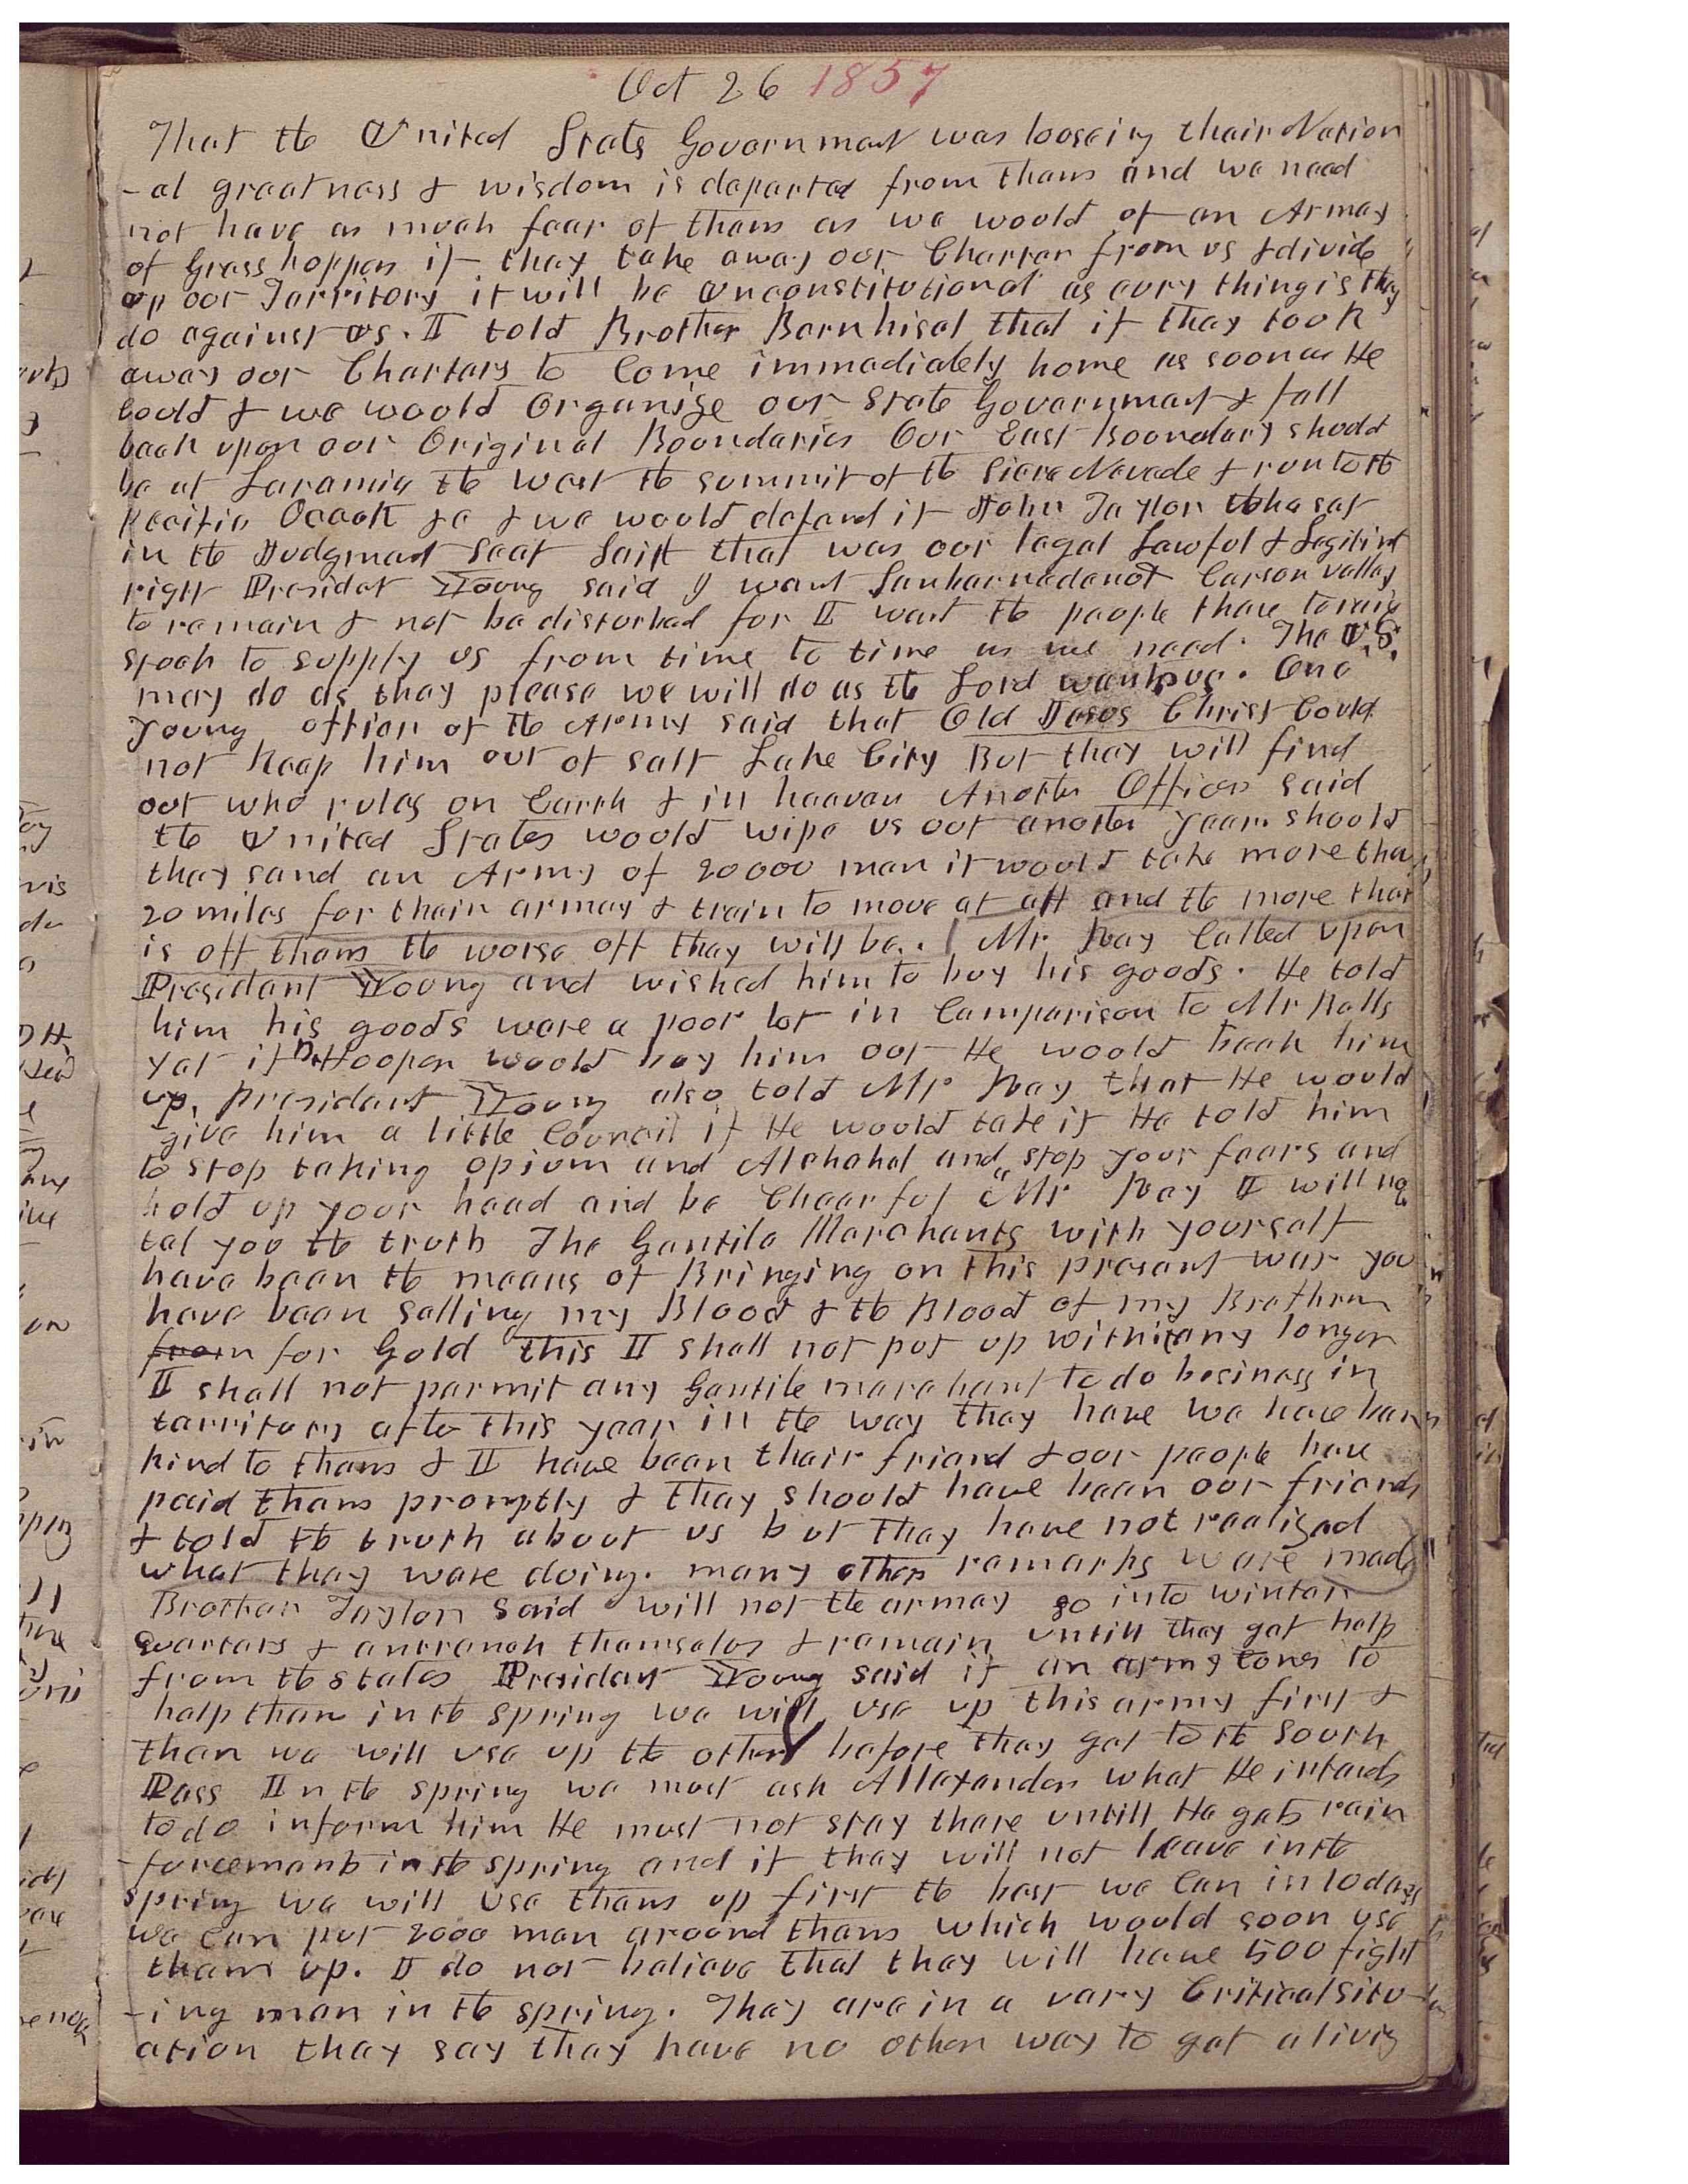 Oct 26 1857
That the United States Government was looseing their Nation
-al greatness & wisdom is departed from them and we need
not have as much fear of them as we would of an Armey
of Grass hoppers if they take away our Charter from us & divide
up our Territory it will be unconstitutional as evry thing is they
do against us. I told Brother Bernhisel that if they took
away our Charters to Come immediately home as soon as He
Could & we would Organize our State Government & fall
back upon our Original Boundaries Our East Boundary should
be at Laramie the West the summit of the Siera Nevade & run to the
Pacific Ocean &c & we would defend it John Taylor who sat
in the Judgment Seat said that was our legal Lawful & Legitimt
right President Young said I want Sanbernadeno & Carson valley
to remain & not be disturbed for I want the people there to raise
stock to supply us from time to time as we need. The U.S.
may do as they please we will do as the Lord wants us. One
Young officer of the Army said that Old Jesus Christ Could
not Keep him out of Salt Lake City But they will find
out who rules on Earth & in heaven Another Officer said
the United States would wipe us out another year. should
they send an Army of 20000 men it would take more than
20 miles for their armey & train to move at all and the more ther
is off them the worse off they will be. Mr Ray Called upon
President Young and wished him to buy his goods. He told
him his goods were a poor lot in Comparison to Mr Kalls
yet if Hooper would buy him out He would back him
up. President Young also told Mr Ray that He would
give him a little Council if He would take it He told him
to stop taking opium and Alchohol and "stop your fears and
hold up your head and be Chearful Mr Ray I will no
tel you the truth The Gentile Marchants with yourself
have been the means of Bringing on this present war you
have been selling my Blood & the Blood of my Brethren
from for Gold this I shall not put up with any longer
I shall not permit any Gentile marchant to do business in
territory after this year in the way they have we have been
kind to them & I have been their friend & our people have
paid them promptly & they should have been our friends
& told the truth about us but they have not realized
what they were doing. many other remarks were made"
Brother Taylor said will not the armey go into winter
Quarters & entrench themselves & remain untill they get help
from the states President Young said if an army comes to
help them in the spring we will use up this army first &
then we will use up the other before they get to the South
Pass In the spring we must ask Allexander what He intends
to do inform him He must not stay there untill He gets rein
-forcements in the spring and if they will not leave in the
spring we will use them up first the best we Can in 10 days
we Can put 2000 men around them which would soon use
them up. I do not believe that they will have 500 fight
-ing men in the spring. They are in a very Critical situ-
ation they say they have no other way to get a living